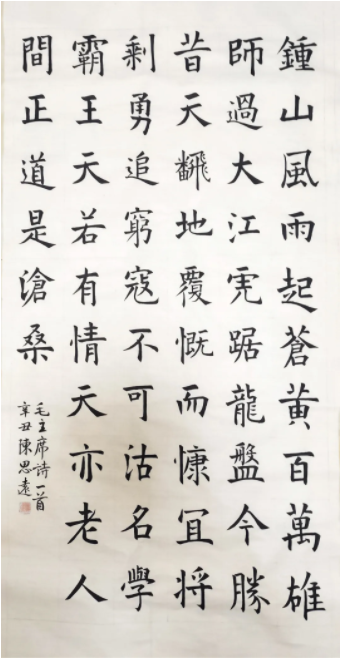 鍾山風雨起蒼黃百萬雄
師過大江虎踞龍盤今勝
昔天翻地覆慨而慷宜將
剩勇追窮寇不可沽名學
霸王天若有情天亦老人
間正道是滄桑
毛主席詩一首
辛丑陳思遠